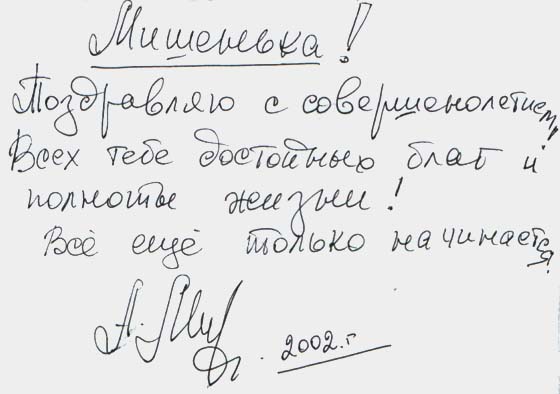 Мишенька!
Поздравляю с совершенолетием,
Всех тебе достойных благ и
полноты жизни!
Всё ещё только начинается!
2002.г